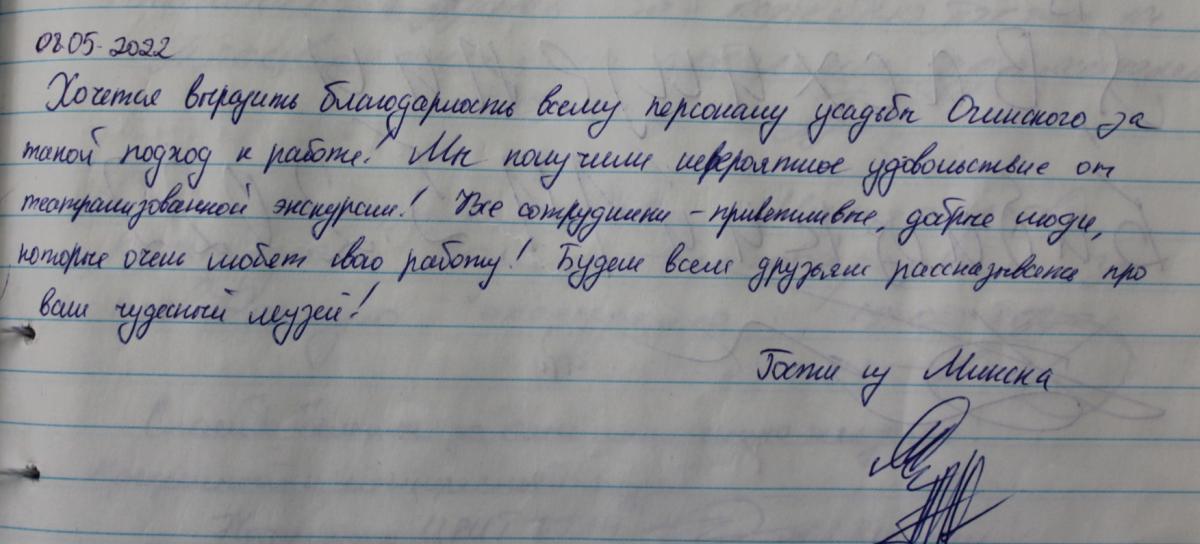 08.05.2022
Хочется выразить благодарность всему персоналу усадьбы Огинского за
такой подход к работе! Мы получили невероятное удовольствие от
театрализованной экскурсии! Все сотрудники - приветливые, добрые люди,
которые очень любят свою работу! Будем всем друзьям рассказывать про
ваш чудесный музей!
Гости из Минска